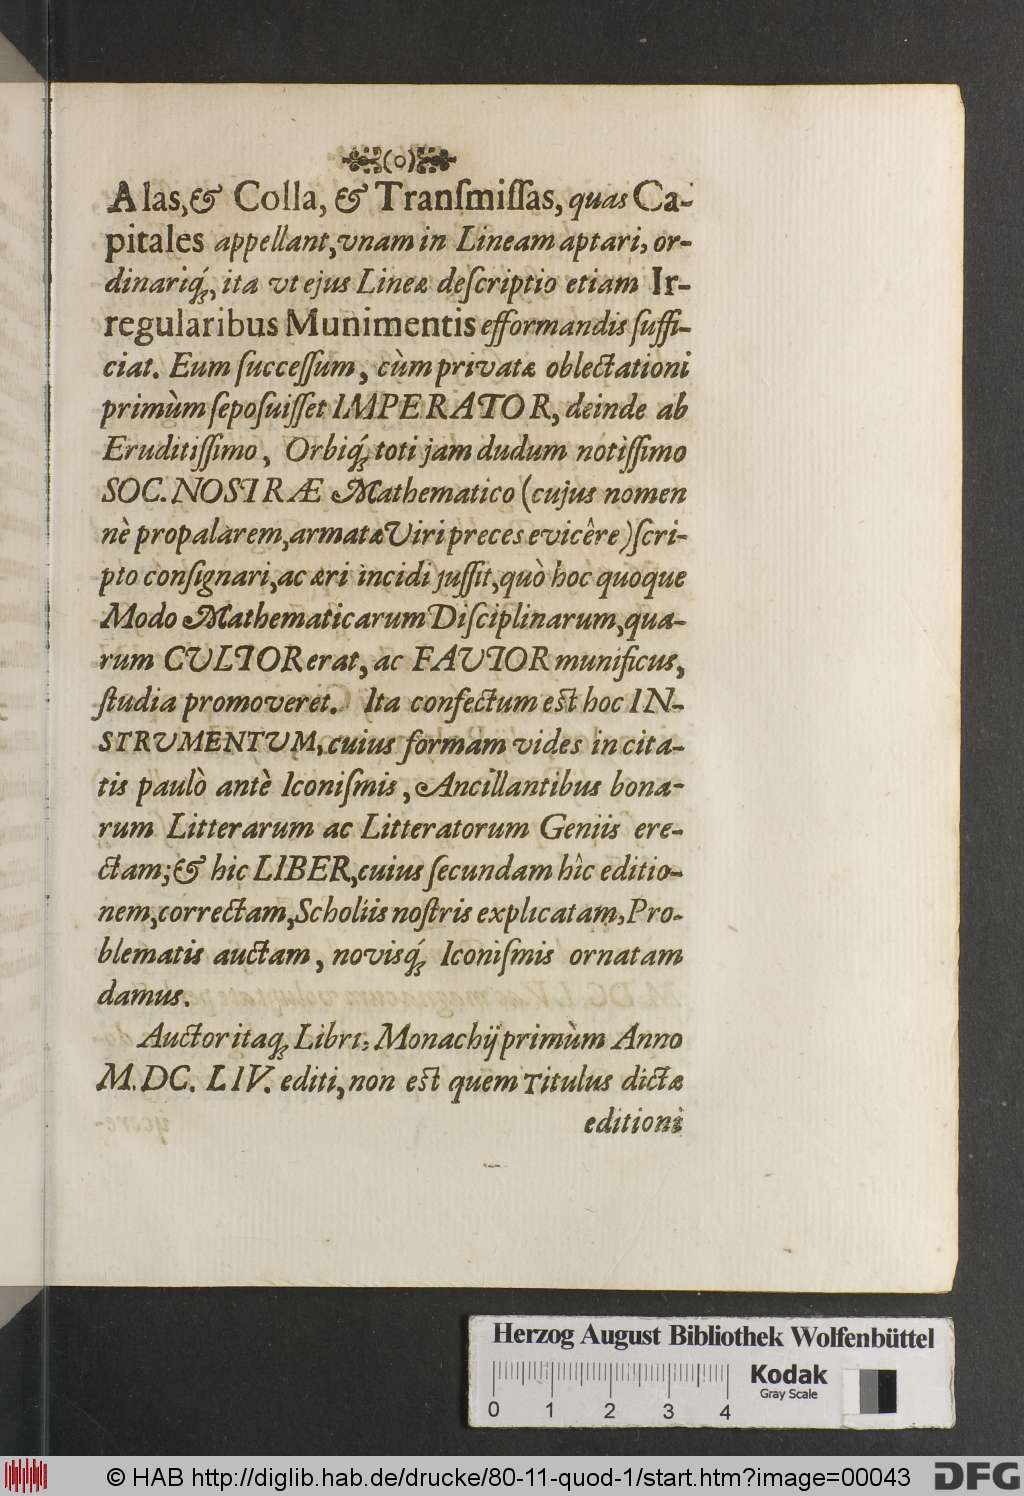 Alas, & Colla, & Tranſmiſſas, quas Ca-
pitales appellant, vnam in Lineam aptari, or-
dinariq́ꝫ, ita vt ejus Lineæ deſcriptio etiam Ir-
regularibus Munimentis efformandis ſuffi-
ciat. Eum ſucceſſum, cùm privatæ oblectationi
primùm ſepoſuiſſet IMPERATOR, deinde ab
Eruditiſſimo, Orbiq́ꝫ toti jam dudum notiſſimo
SOC. NOSTRÆ Mathematico (cujus nomen
nè propalarem, armatæ Viri preces evicêre) ſcri-
pto conſignari, ac æri incidi juſſit, quò hoc quoque
Modo Mathematicarum Diſciplinarum, qua-
rum CVLTOR erat, ac FAVTOR munificus,
ſtudia promoveret. Ita confectum eſt hoc IN-
STRVMENTVM, cuius formam vides in cita-
tis paulò antè Iconiſmis, Ancillantibus bona-
rum Litterarum ac Litteratorum Geniis ere-
ctam; & hic LIBER, cuius ſecundam hìc editio-
nem, correctam, Scholiis noſtris explicatam, Pro-
blematis auctam, novisq́ꝫ Iconiſmis ornatam
damus.
Auctor itaqꝫ Libri, Monachij primùm Anno
M.DC. LIV. editi, non eſt quem Titulus dictæ
editioni
Herzog August Bibliothek Wolfenbüttel
0 1 2 3 4
Kodak
Gray Scale
© HAB http://diglib.hab.de/drucke/80-11-quod-1/start.htm?image=00043
DFG